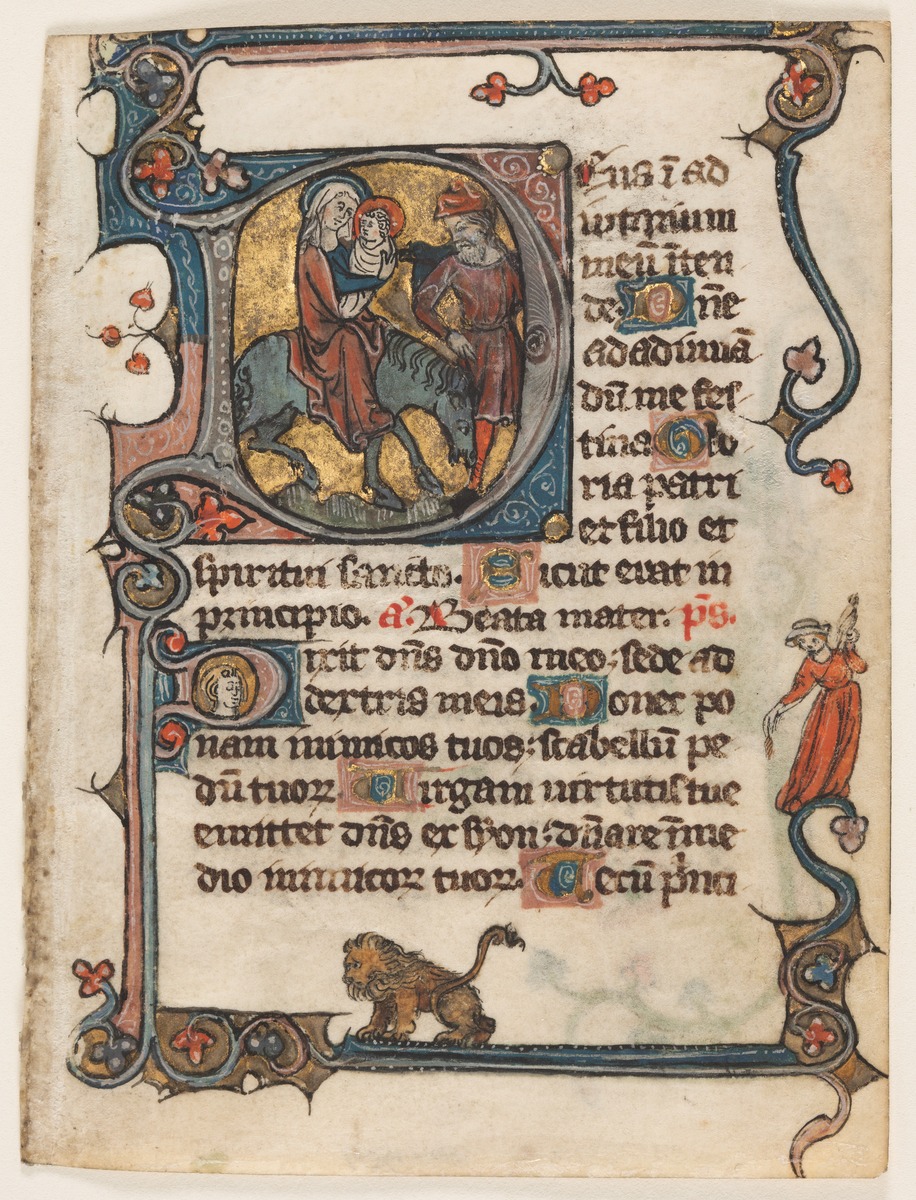 Eus ī ad
iutorium
meū īten
de. Dn̄e
ad adiuuā
dū me fes
tina Glo
ria patri
et filio et
spiritui sancto. Sicut erat in
principio. a'. Beata mater. ps̄.
Dixit dn̄s dn̄o meo: sede ad
dextris meis. Donec po
nam inimicos tuos: scabellū pe
dū tuoꝝ Uirgam uirtutis tue
emittet dn̄s ex syon: dn̄are ī me
dio inimicoꝝ tuoꝝ. Tecū p̄nci